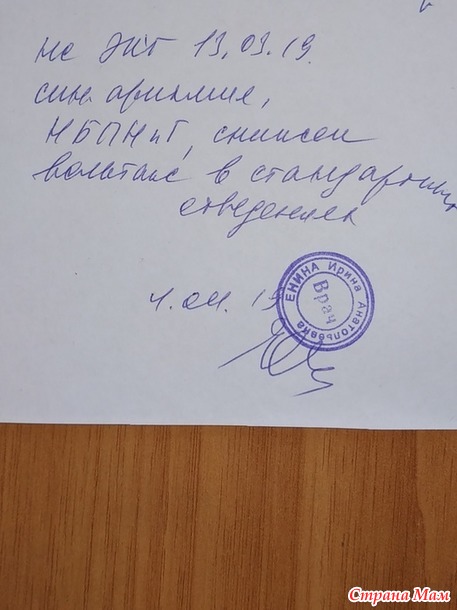 на ЭКГ 13.03.19.
син. аритмия,
НБПНпГ, снижен
вольтаж в стандартных
отведениях
1.04.19
ЕНИНА Ирина Анатольевна
Врач
Страна Мам